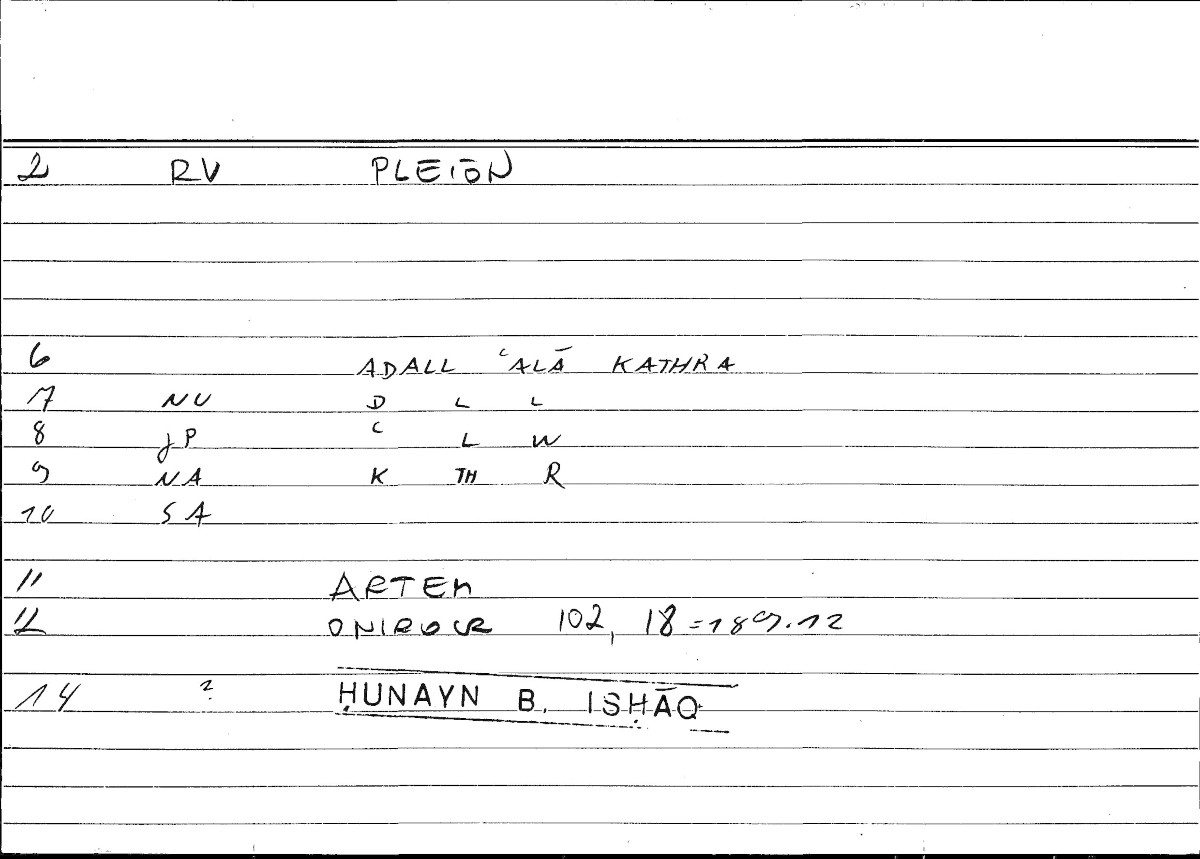 2 RV PLEIŌN
6 ADALL ʿALĀ KATHRA
7 NU D L L
8 JP ʿ L W
9 NA K TH R
10 SA
11 ARTEM
12 ONIROCR 102, 18=189.12
14 ? ḤUNAYN B. ISḤĀQ